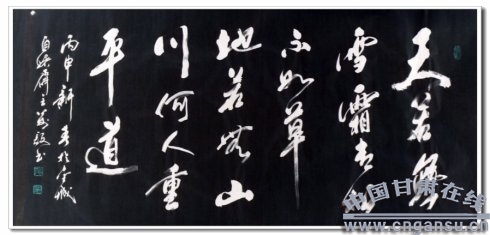 天若無
雪霜青松
不如草
地若無山
川何人重
平道
丙申新春於金城
自 主 书
中国甘肃在线
www.cngansu.cn